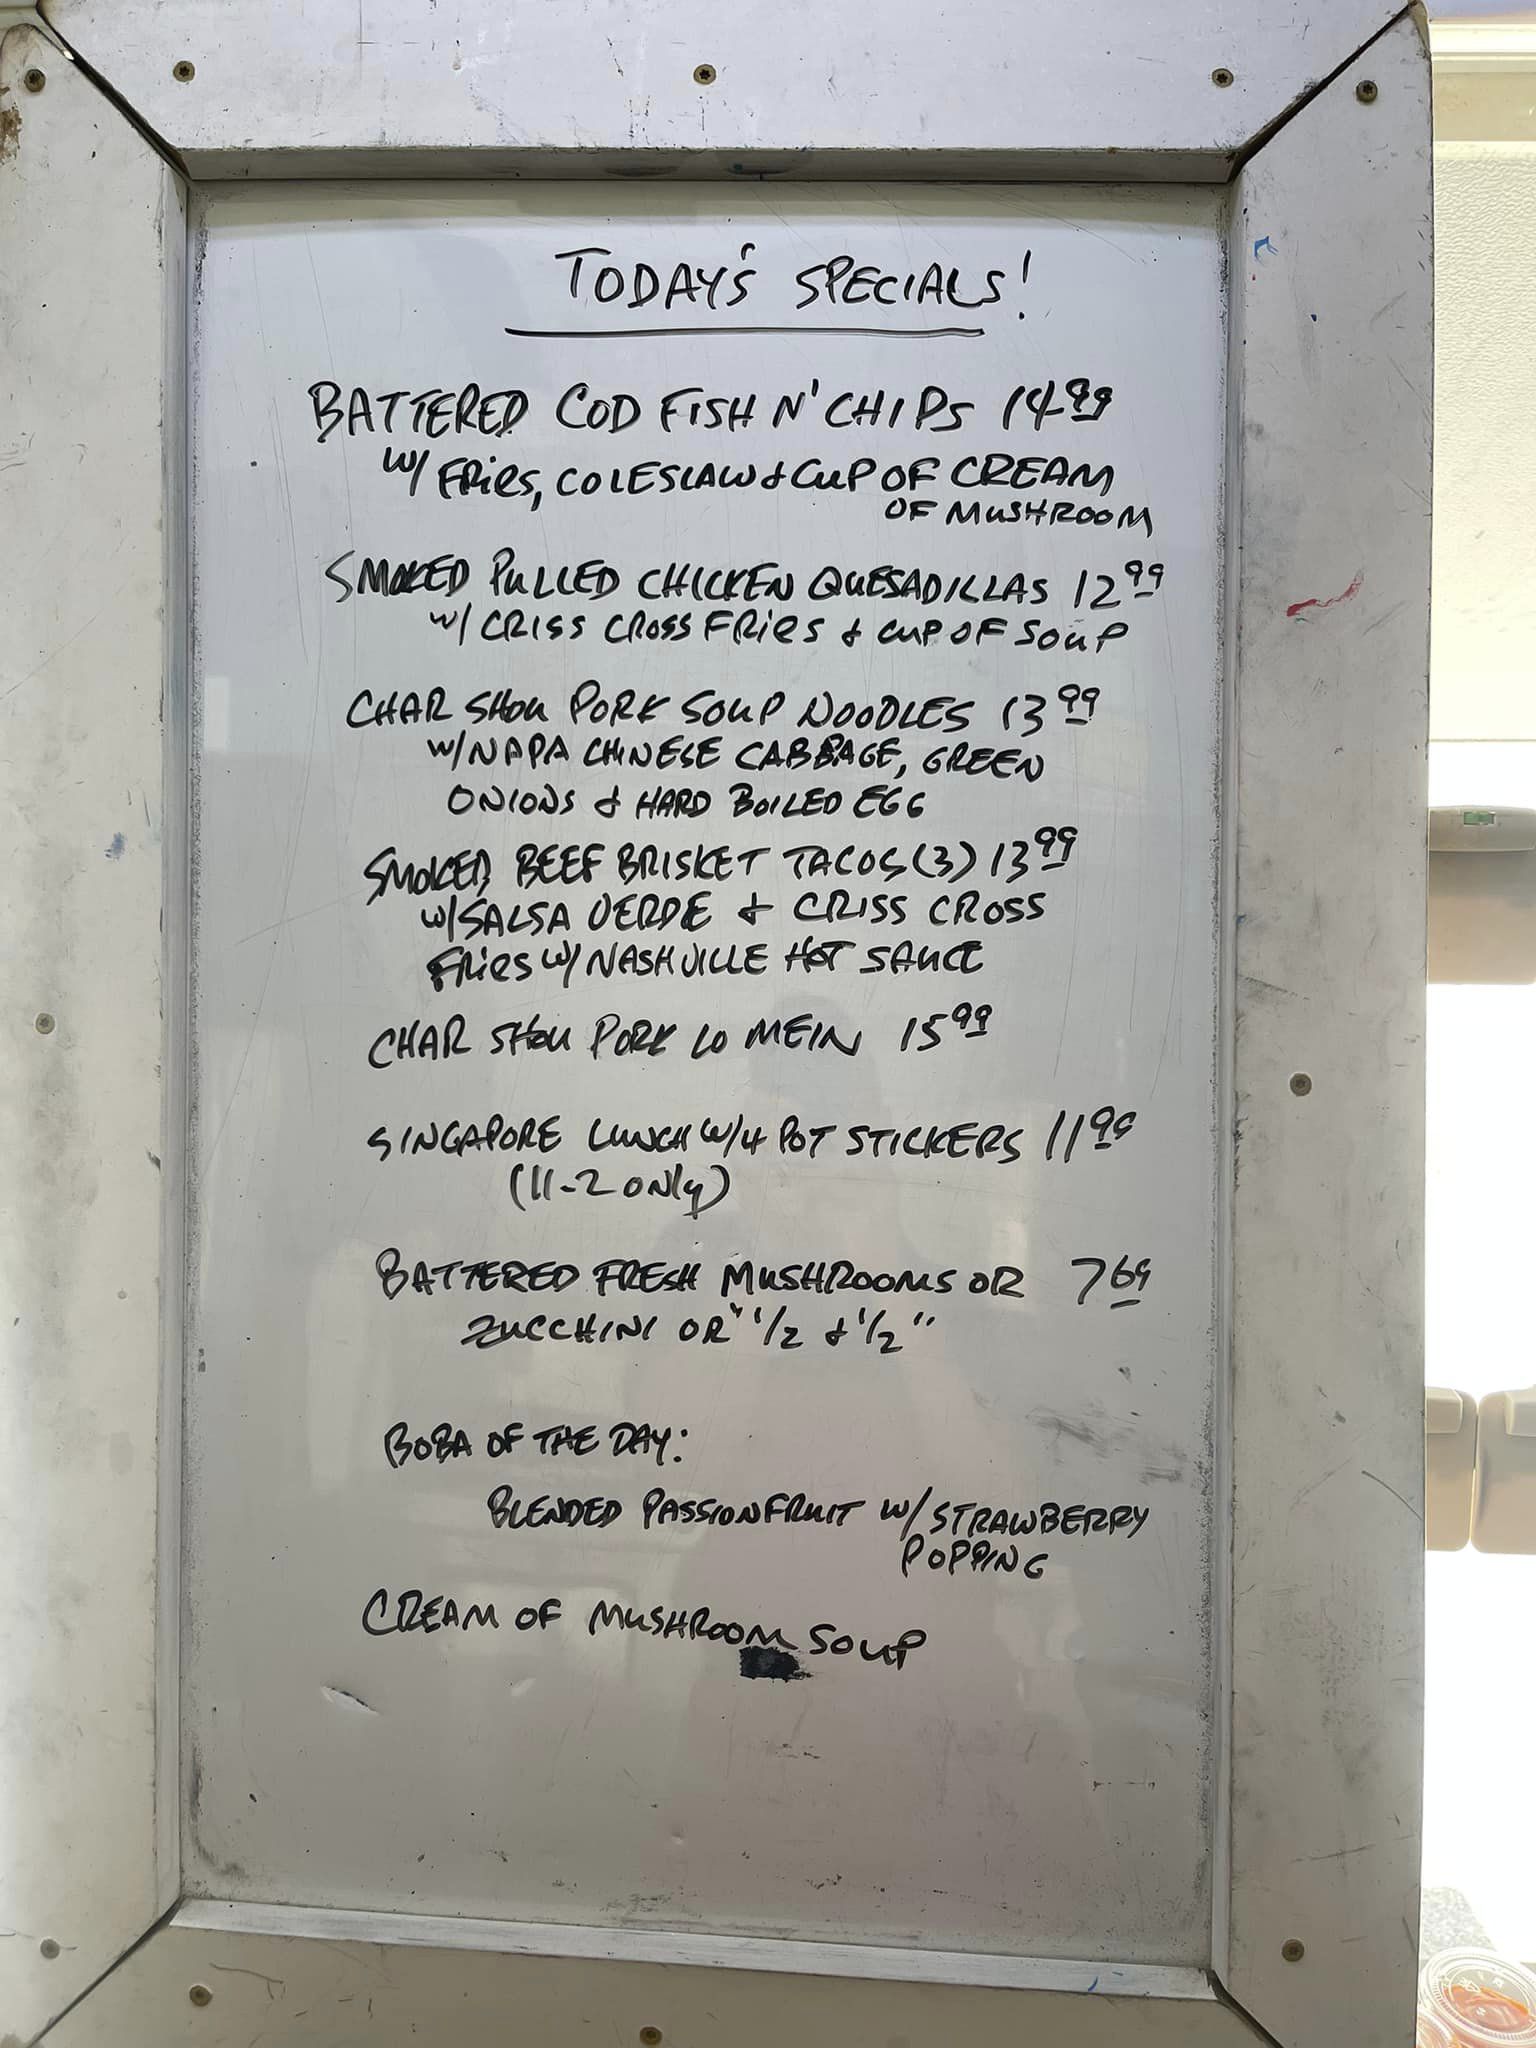 TODAY'S SPECIALS!
BATTERED COD FISH N' CHIPS 14.99
W/ FRIES, COLESLAW & CUP OF CREAM
OF MUSHROOM
SMOKED PULLED CHICKEN QUESADILLAS 12.99
W/ CRISS CROSS FRIES & CUP OF SOUP
CHAR SHOU PORK SOUP NOODLES 13.99
W/ NAPA CHINESE CABBAGE, GREEN
ONIONS & HARD BOILED EGG
SMOKED BEEF BRISKET TACOS (3) 13.99
W/ SALSA VERDE & CRISS CROSS
FRIES W/ NASHVILLE HOT SAUCE
CHAR SHOU PORK LO MEIN 15.99
SINGAPORE LUNCH W/ 4 POT STICKERS 11.99
(11-2 ONLY)
BATTERED FRESH MUSHROOMS OR 7.69
ZUCCHINI OR "1/2 & 1/2"
BOBA OF THE DAY:
BLENDED PASSIONFRUIT W/ STRAWBERRY
POPPING
CREAM OF MUSHROOM SOUP